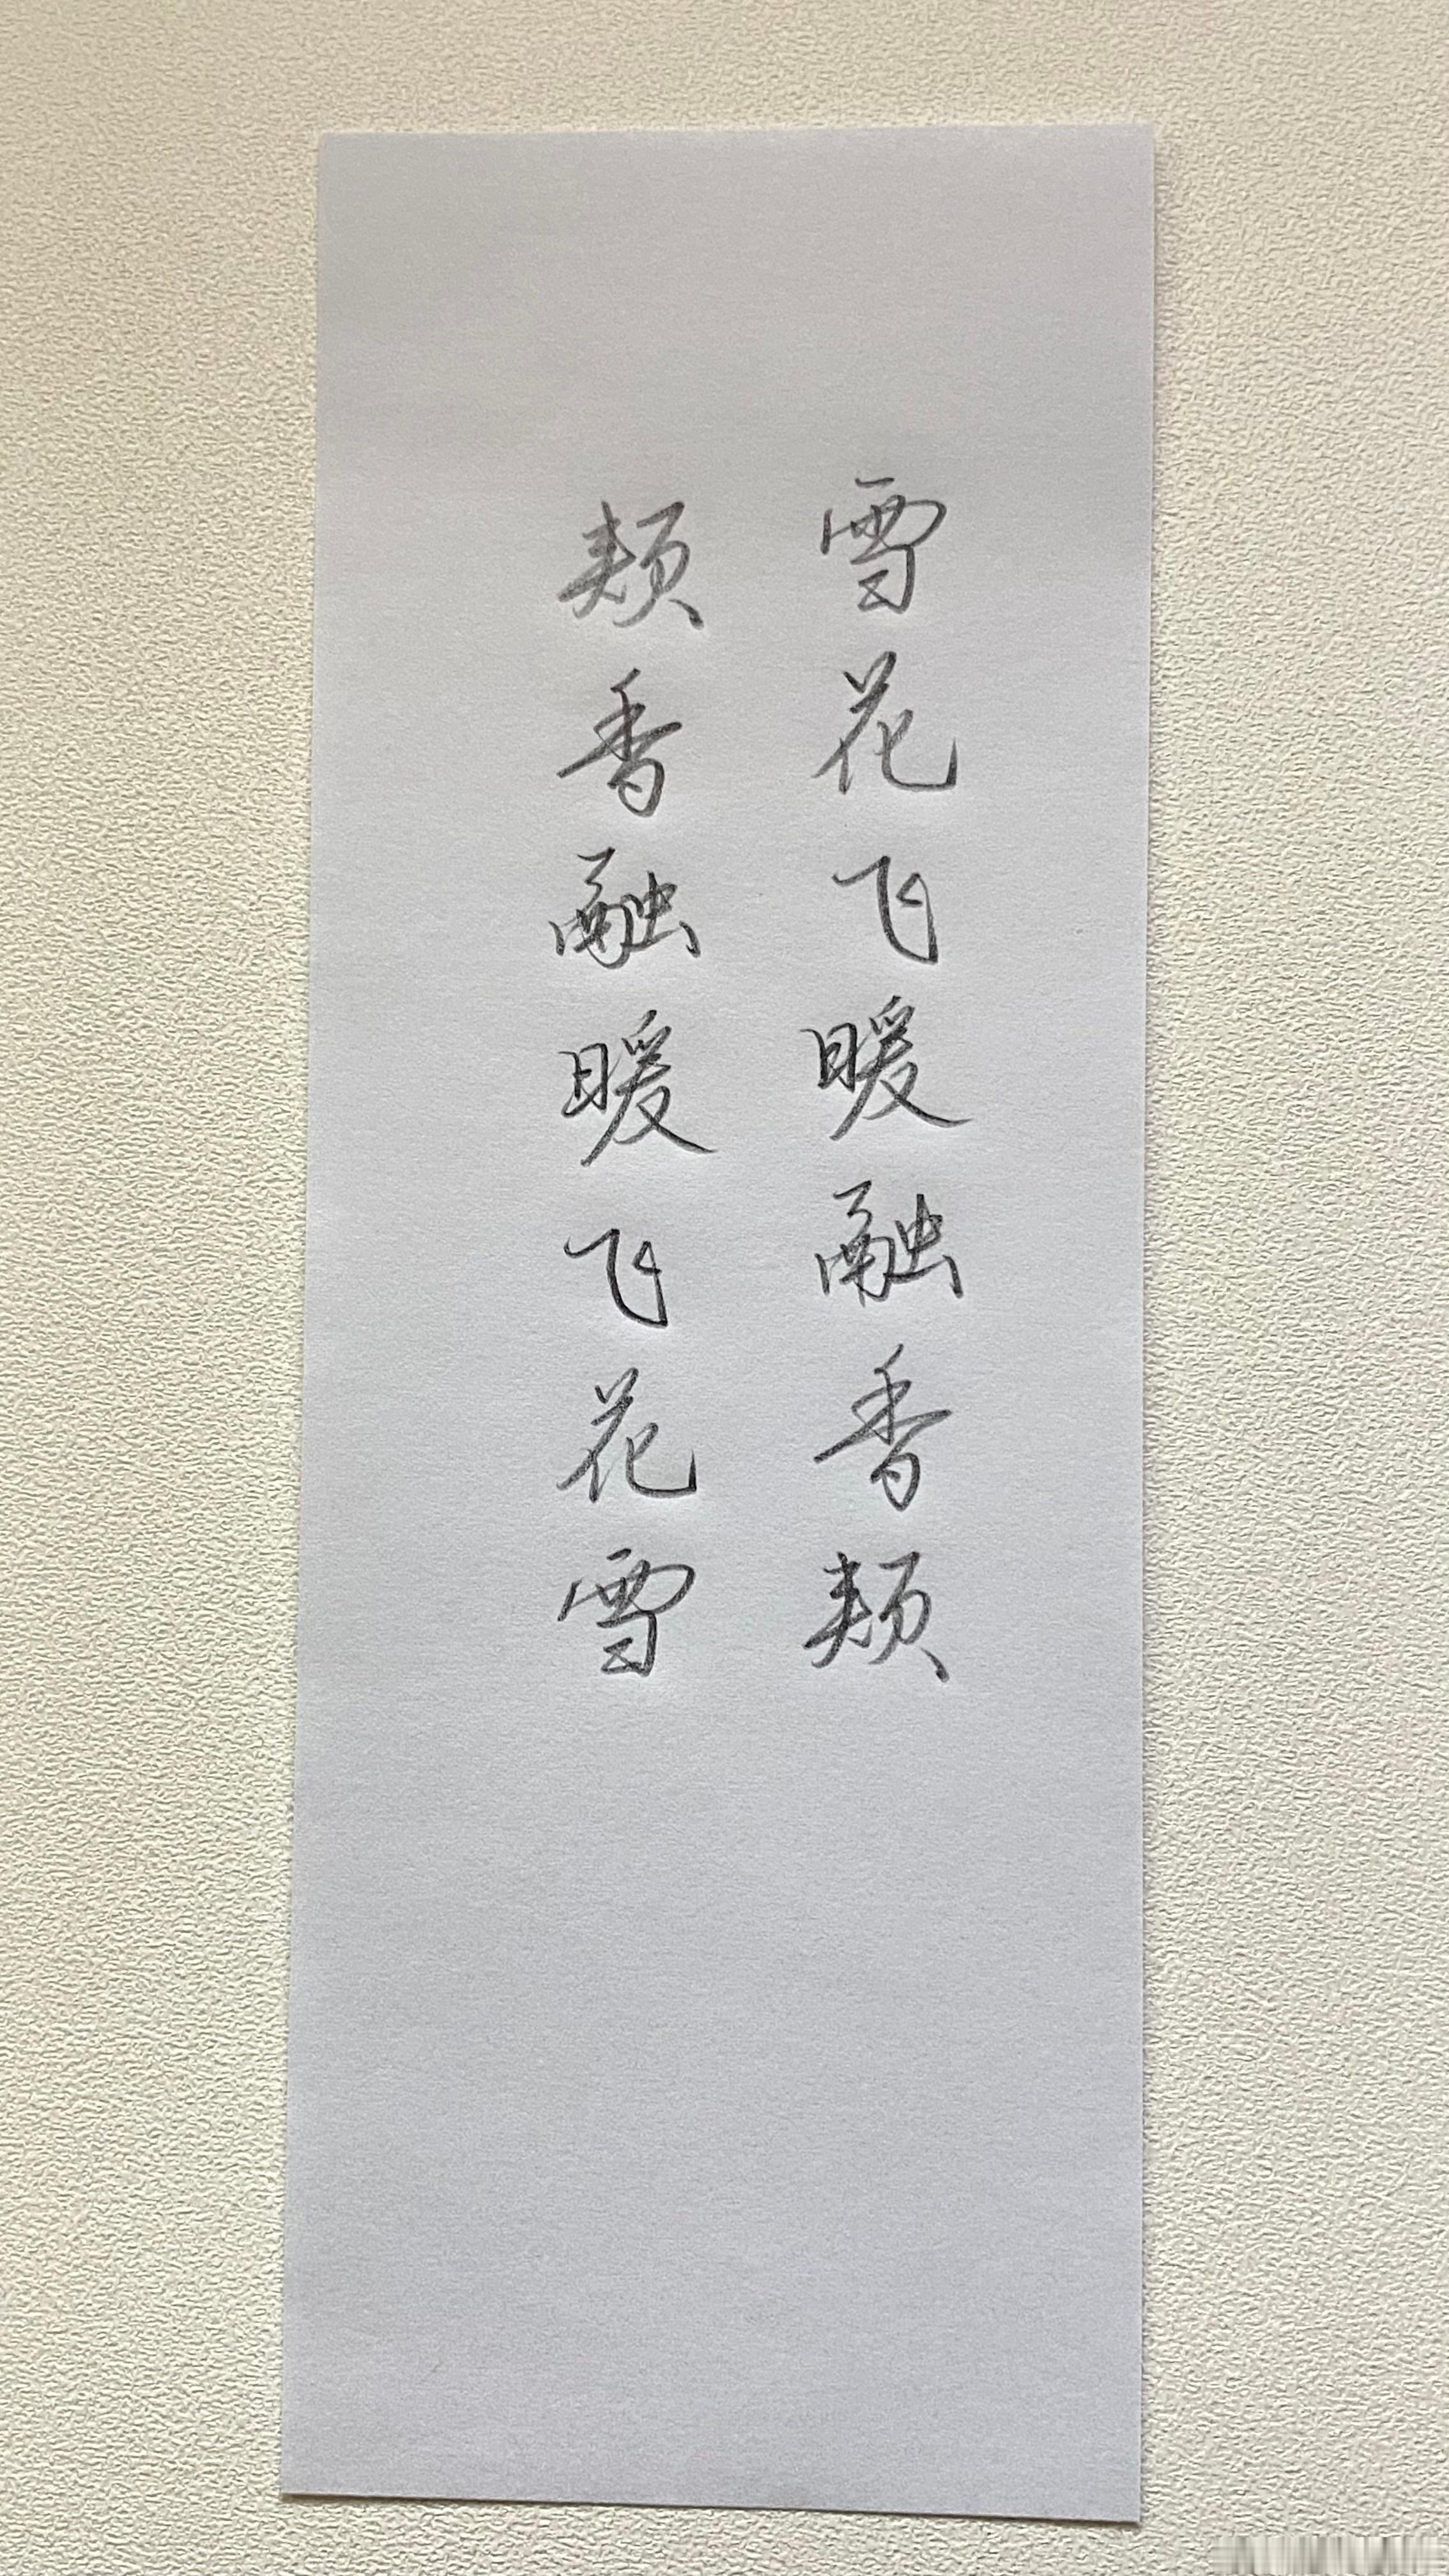 雪花飞暖融香颊
颊香融暖飞花雪